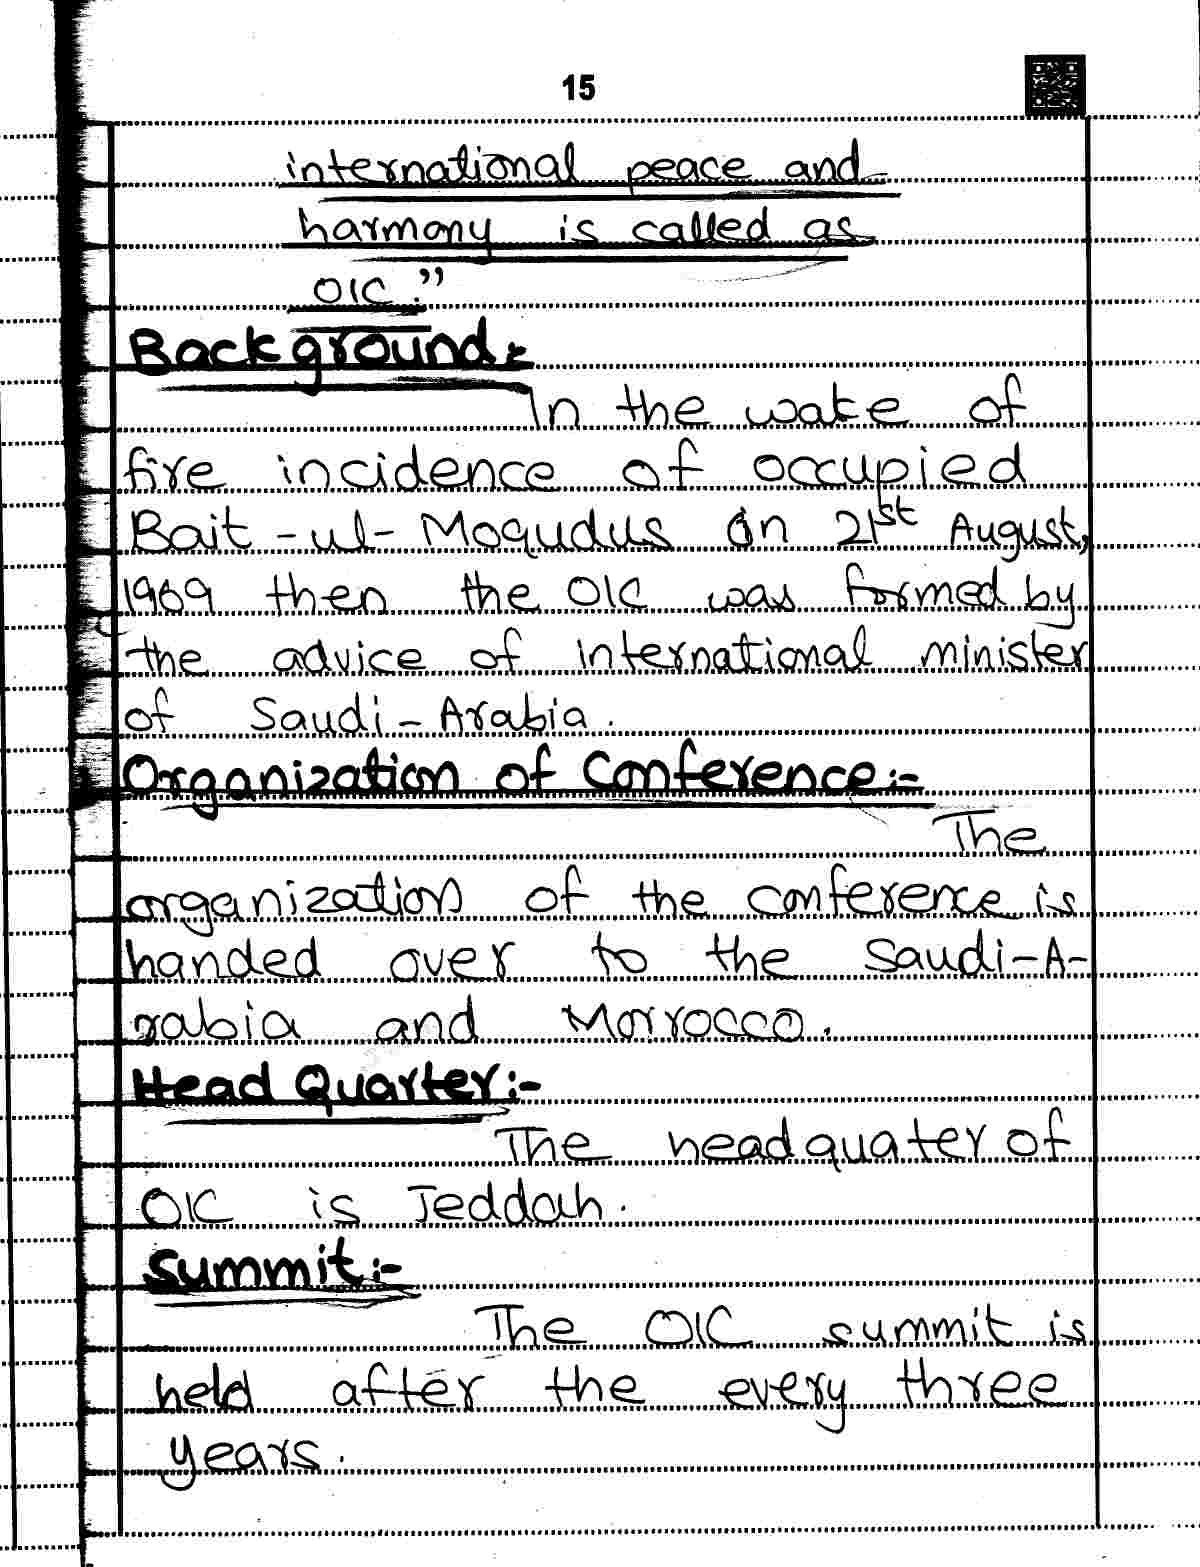 15
international peace and
harmony is called as
OIC."
Background:-
In the wake of
fire incidence of occupied
Bait-ul-Moqudus on 21st August,
1969 then the OIC was formed by
the advice of international minister
of Saudi-Arabia.
Organization of Conference:-
The
organization of the conference is
handed over to the Saudi-A-
rabia and Morrocco.
Head Quarter:-
The headquater of
OIC is Jeddah.
Summit:-
The OIC summit is
held after the every three
years.